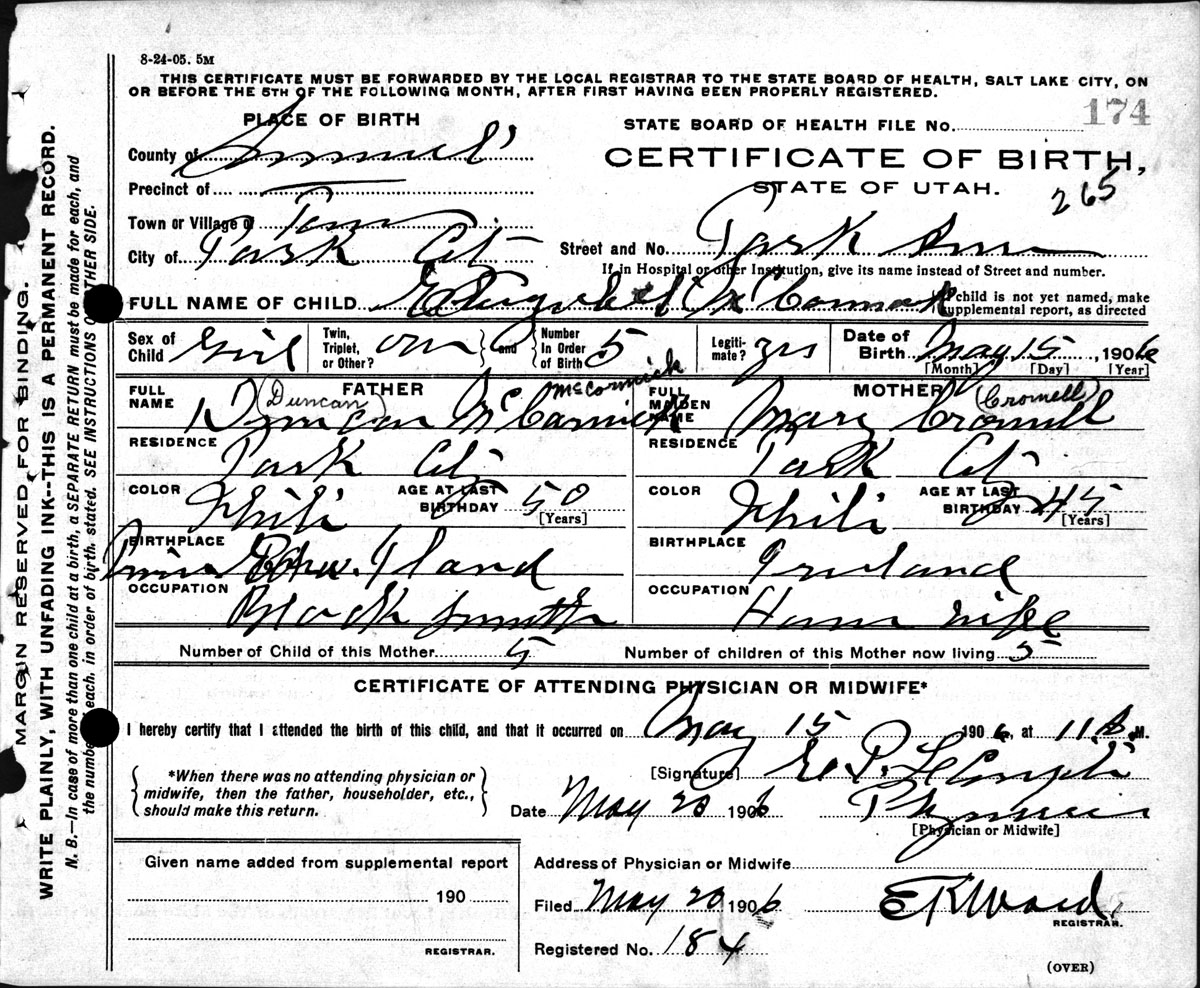 8-24-05. 5M
THIS CERTIFICATE MUST BE FORWARDED BY THE LOCAL REGISTRAR TO THE STATE BOARD OF HEALTH, SALT LAKE CITY, ON
OR BEFORE THE 5TH OF THE FOLLOWING MONTH, AFTER FIRST HAVING BEEN PROPERLY REGISTERED.
174
PLACE OF BIRTH
STATE BOARD OF HEALTH FILE No.
County of Summit
CERTIFICATE OF BIRTH,
Precinct of
STATE OF UTAH.
265
Town or Village of
City of Park City
Street and No. Park Ave
If in Hospital or other Institution, give its name instead of Street and number.
FULL NAME OF CHILD McCormick
If child is not yet named, make
supplemental report, as directed
Sex of Child Girl
Twin, Triplet, or Other? and
Number In Order of Birth 5
Legiti-mate? yes
Date of Birth May 15, 1906
[Month] [Day] [Year]
FATHER
FULL NAME Duncan McCormick
(Duncan) McCormick
MOTHER
FULL MAIDEN NAME Mary Cromell
(Cromell)
RESIDENCE Park City
RESIDENCE Park City
COLOR White
AGE AT LAST BIRTHDAY 50
[Years]
COLOR White
AGE AT LAST BIRTHDAY 45
[Years]
BIRTHPLACE Prince Edw. Island
BIRTHPLACE Ireland
OCCUPATION Black Smith
OCCUPATION House wife
Number of Child of this Mother 5
Number of children of this Mother now living 5
CERTIFICATE OF ATTENDING PHYSICIAN OR MIDWIFE*
I hereby certify that I attended the birth of this child, and that it occurred on May 15 1906, at 11 M.
*When there was no attending physician or
midwife, then the father, householder, etc.,
should make this return.
[Signature] E. P. LeCompte
Date May 20 1906 Physician
[Physician or Midwife]
Given name added from supplemental report
190
REGISTRAR.
Address of Physician or Midwife
Filed May 20 1906 E K Ward,
REGISTRAR.
Registered No. 184
(OVER)
MARGIN RESERVED FOR BINDING.
WRITE PLAINLY, WITH UNFADING INK--THIS IS A PERMANENT RECORD.
N. B.—In case of more than one child at a birth, a SEPARATE RETURN must be made for each, and
the number of each, in order of birth, stated. SEE INSTRUCTIONS ON OTHER SIDE.